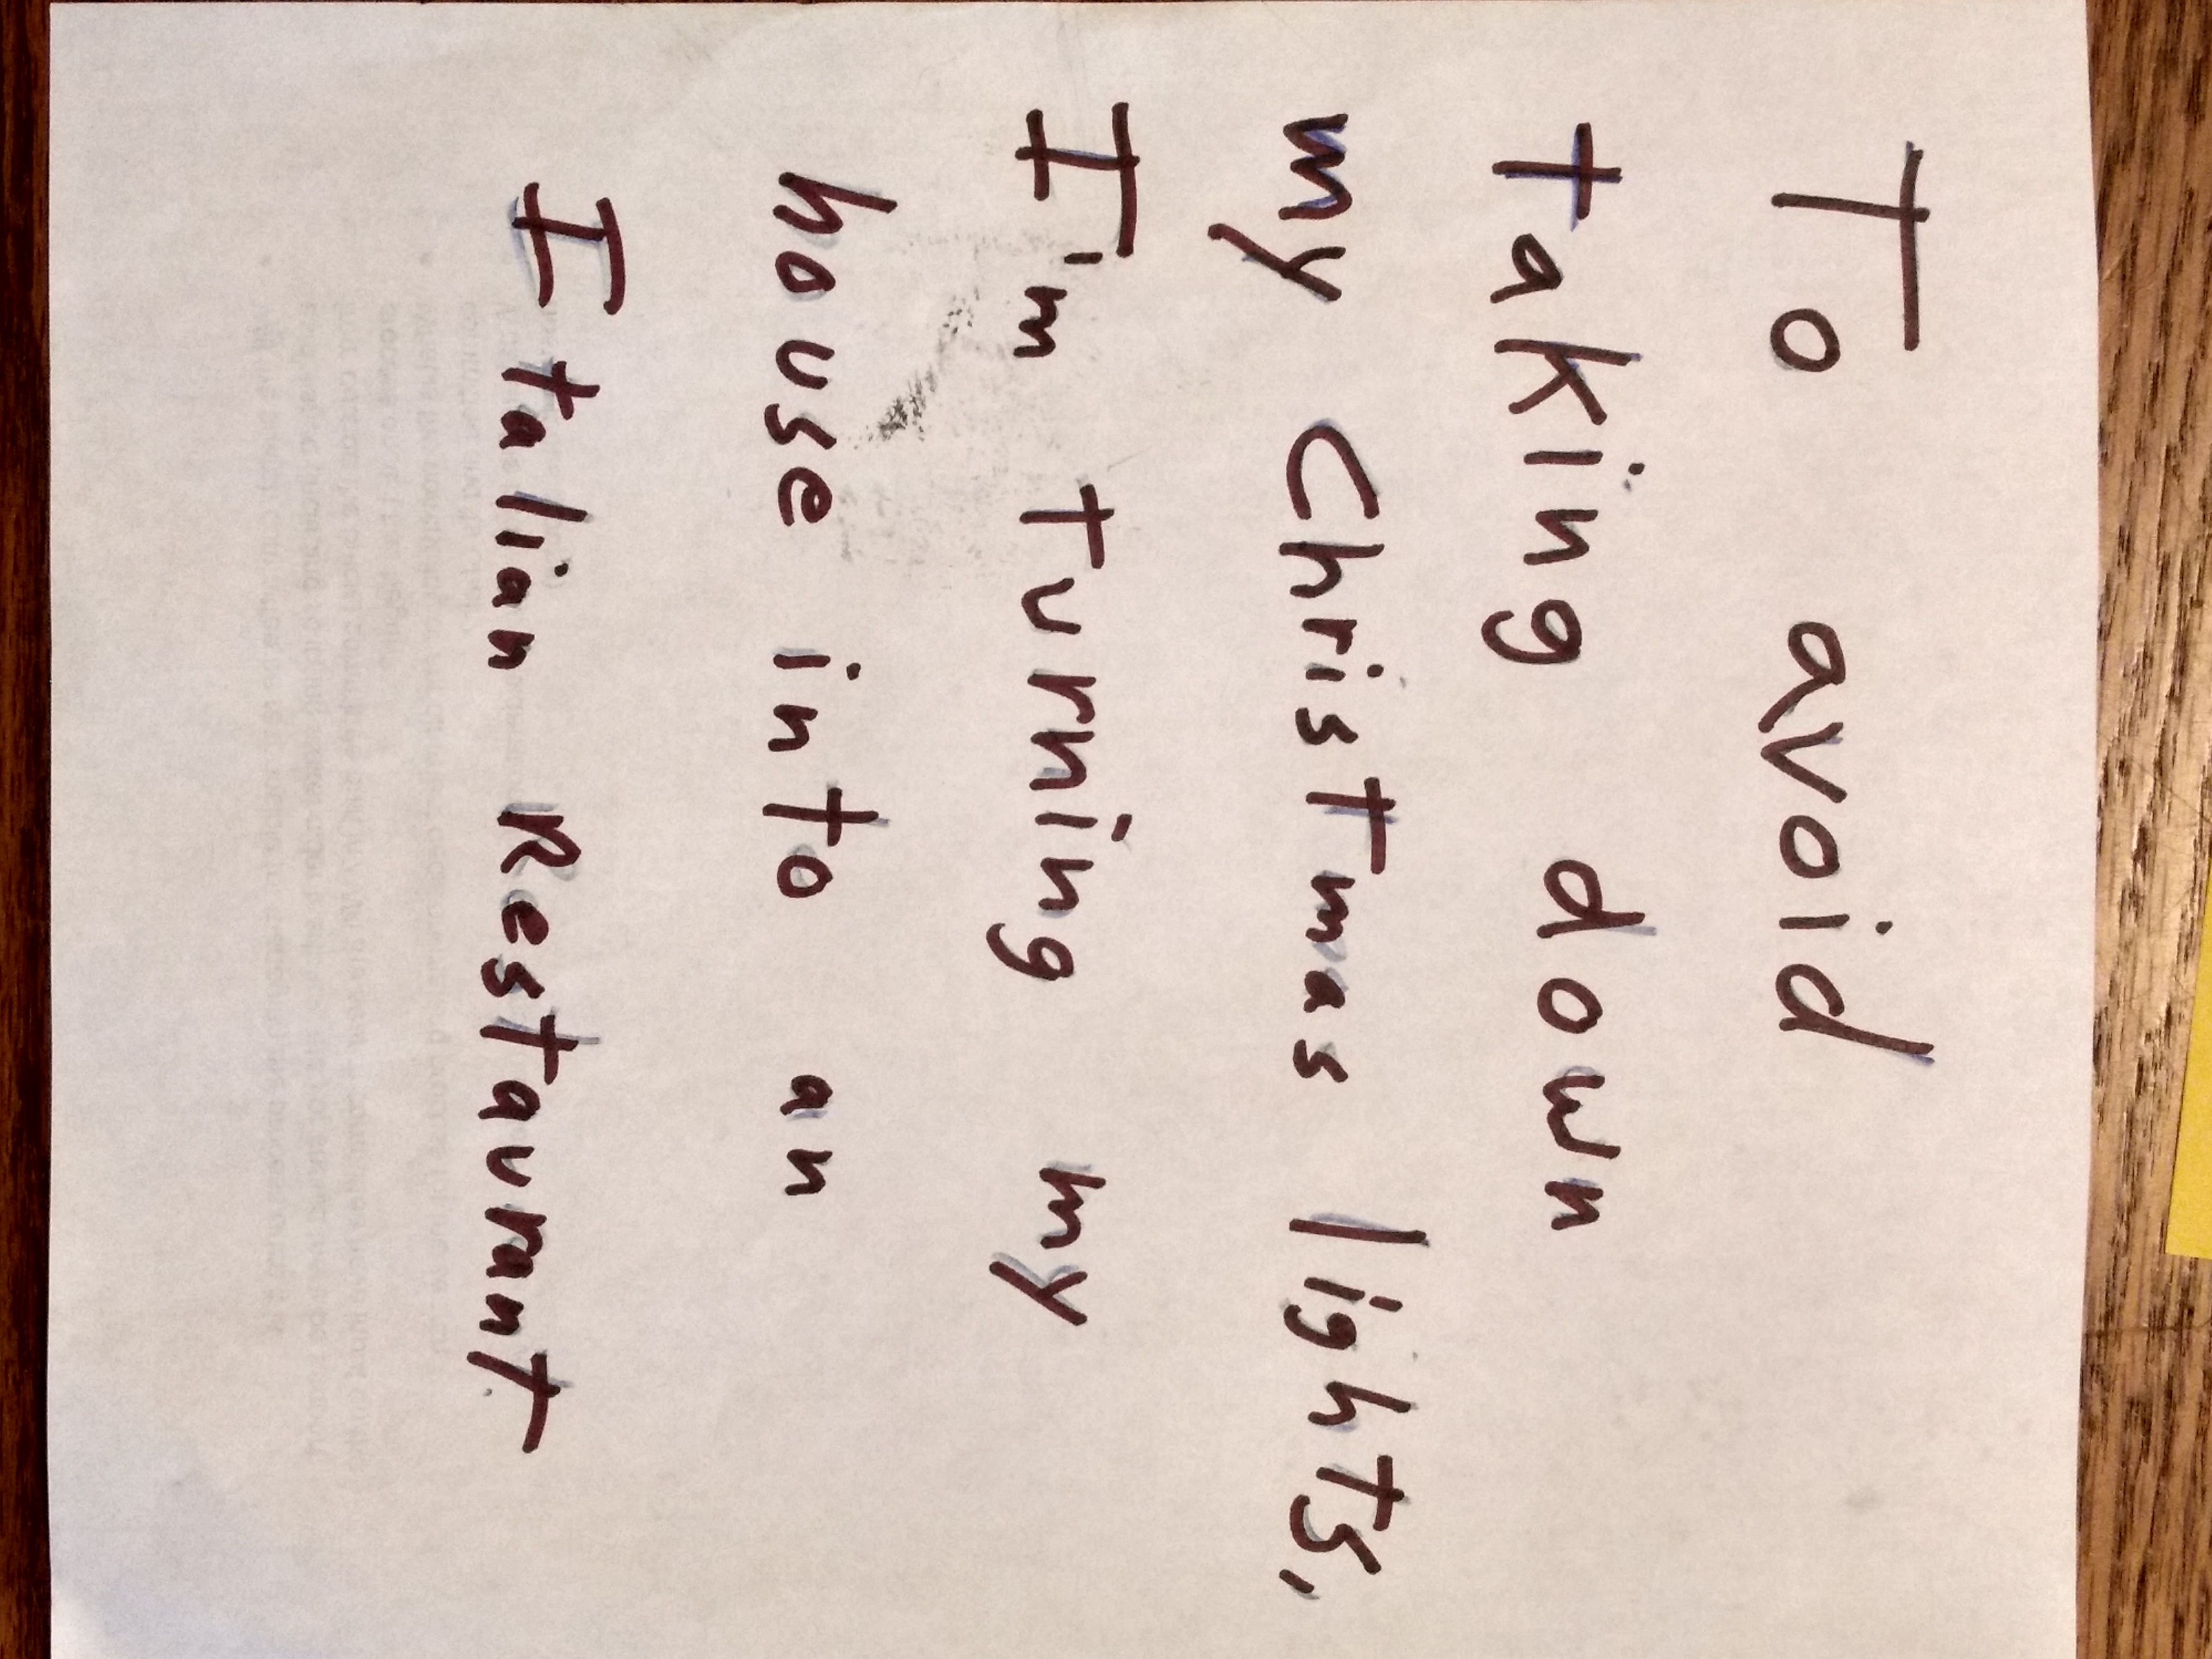 To avoid
taking down
my Christmas lights,
I'm turning my
house into an
Italian Restaurant